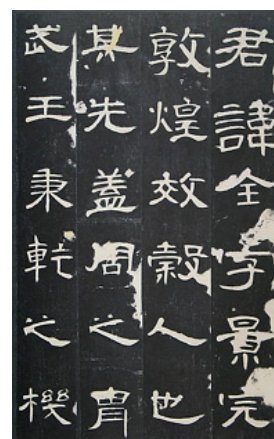 君諱全字景完
敦煌效穀人也
其先蓋周之冑
武王秉乾之機